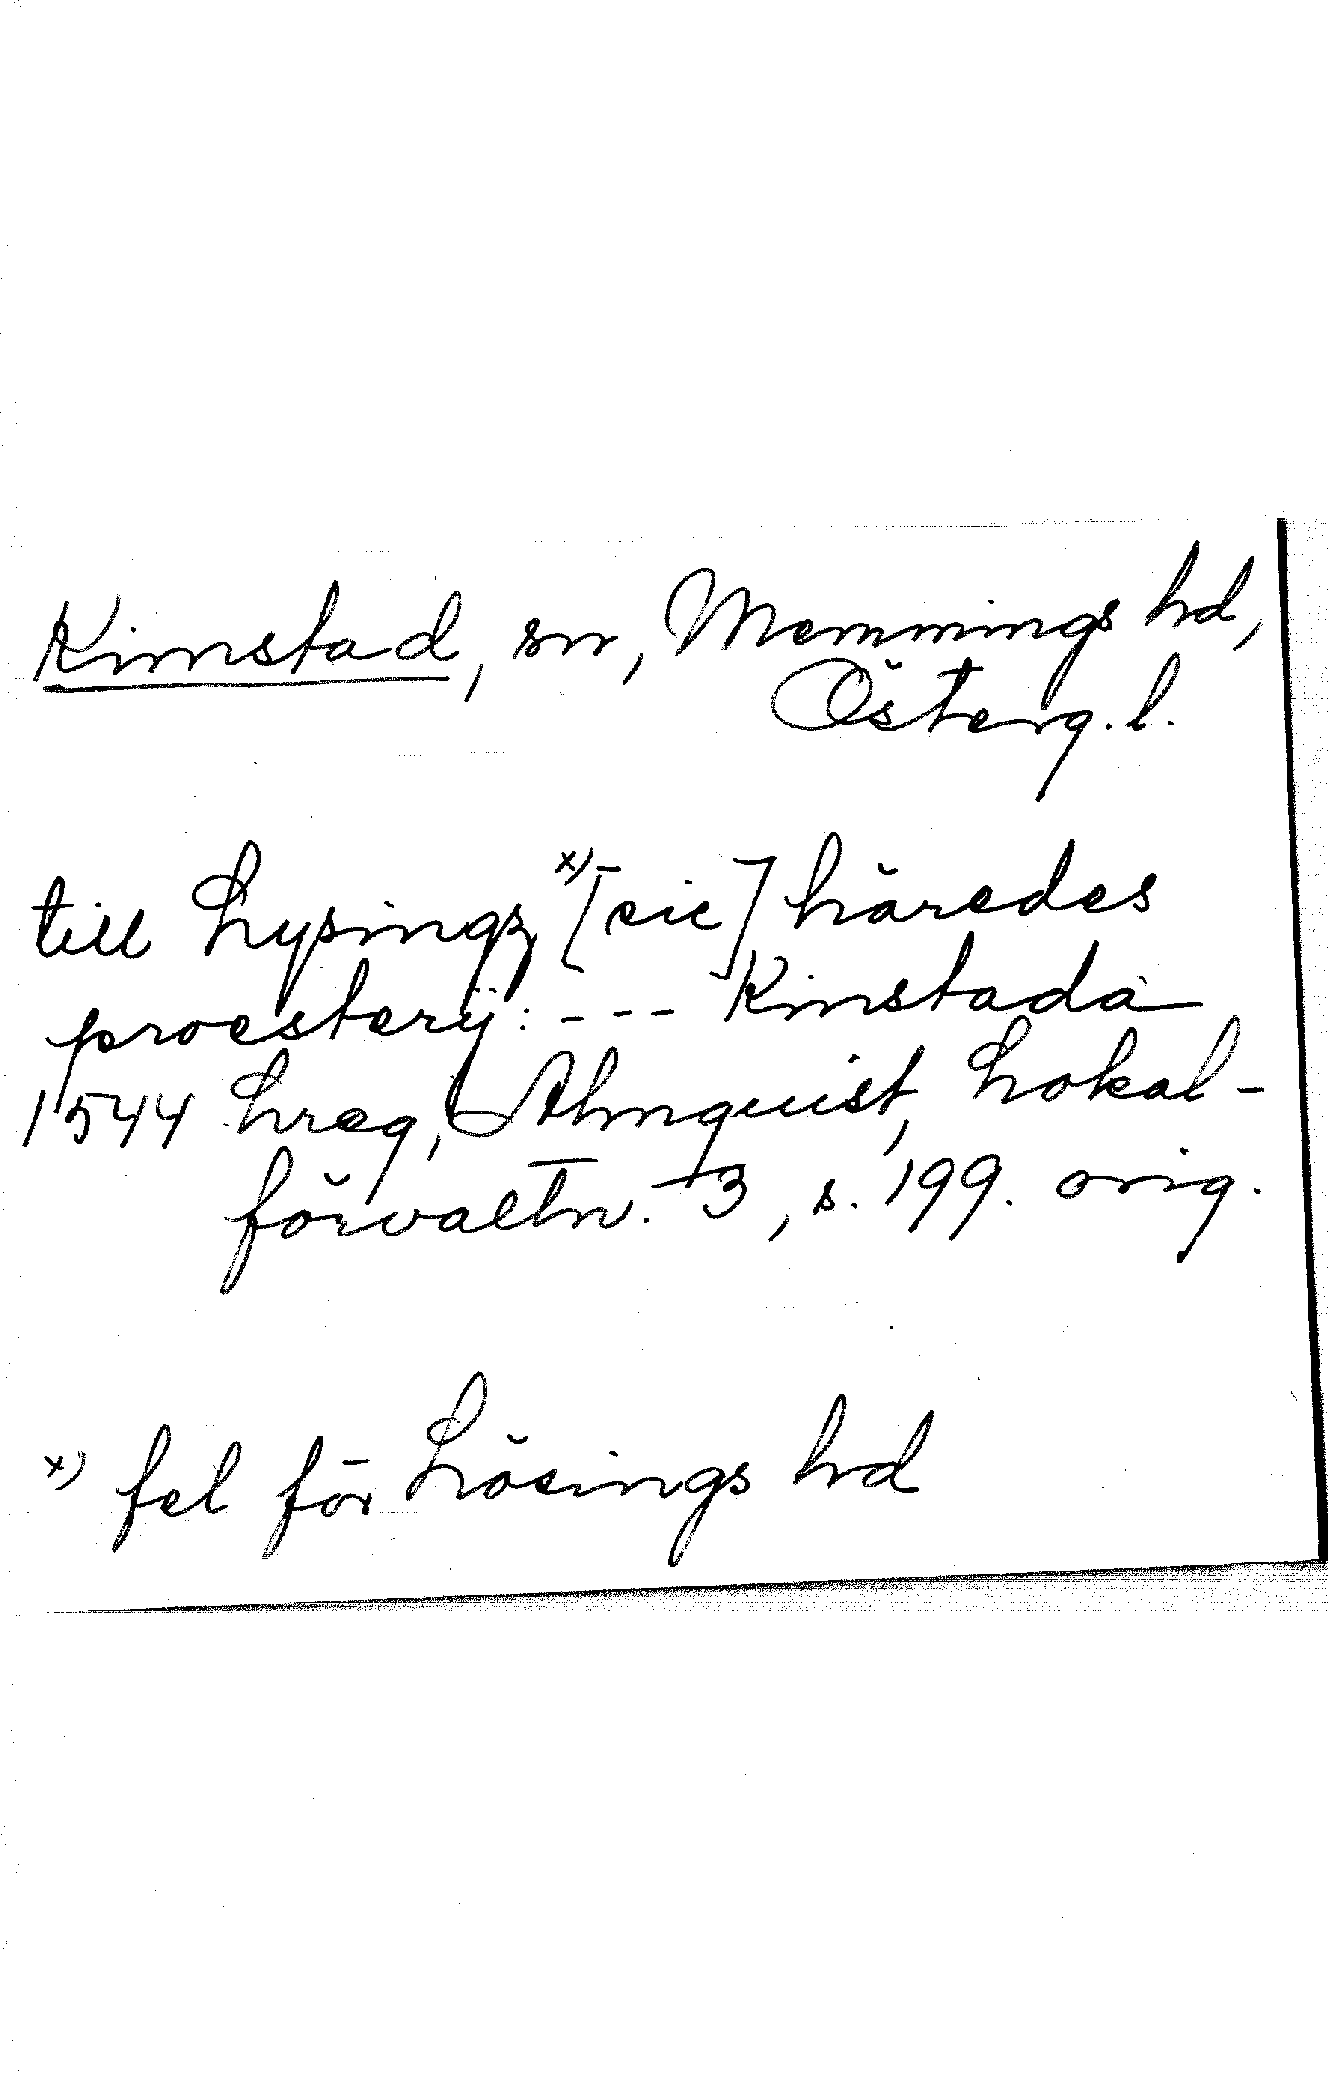 Kimstad, sn, Memmings hd,
Österg. l.
till Lysingz x) [sic] häredes
proesterij: --- Kinstada
1544 hreg, Almquist, Lokal-
förvaltn. 3, s. 199. orig.
x) fel för Lösings hd